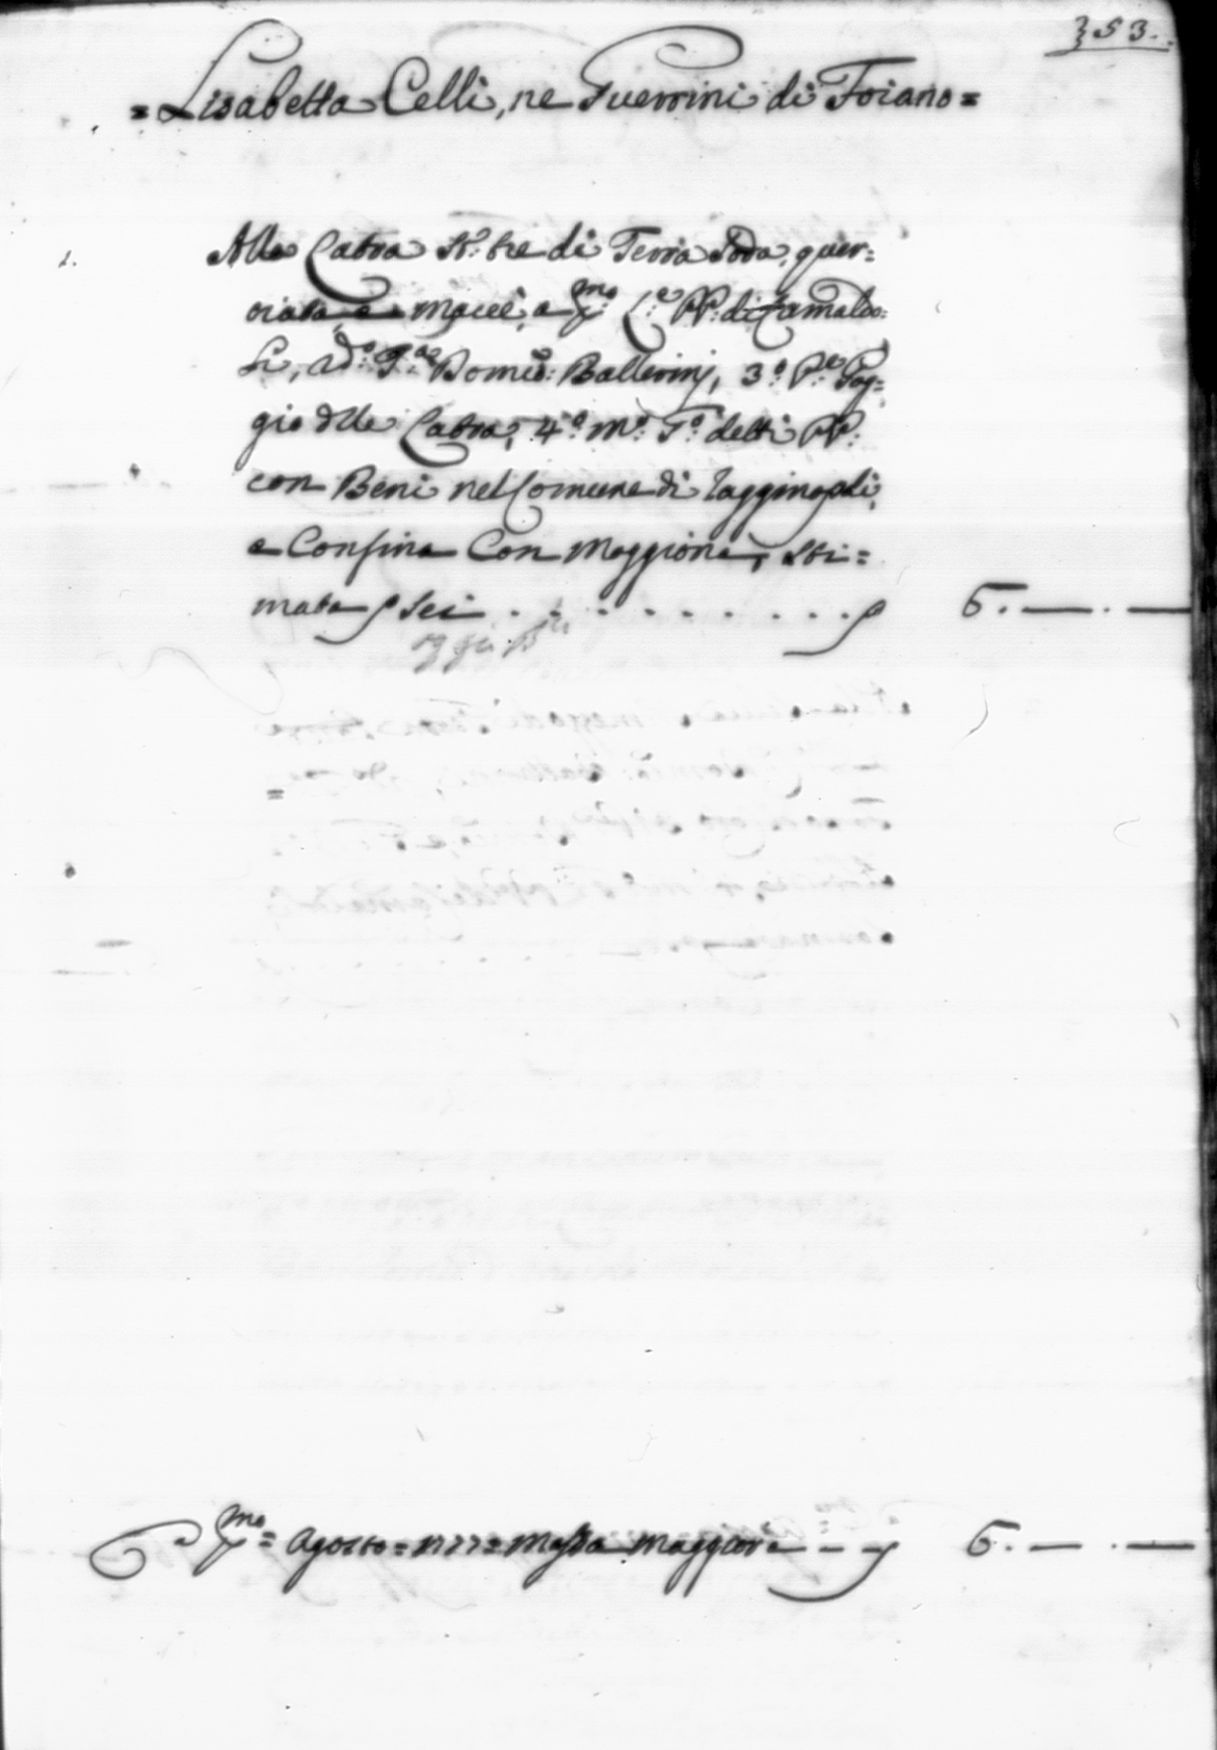 353.
= Lisabetta Celli, ne Guerrini di Foiano =
1. Alla Cabra St: tre di Terra Soda, quer=
ciata e Macch, a pmo C:e PP: di Camaldo=
li, Do: Domco: Ballerini, 3o: Pe Pog=
gio dlle Cabra, 4o: Mo: To: detti PP:
con Beni nel Comune di Tagginopoli,
e Confina Con Moggiona, Sti=
mata Sei . . . . . . . . . . 6. — . —
pmo = Agosto = 1777 = Massa Maggiore — — 6. — . —